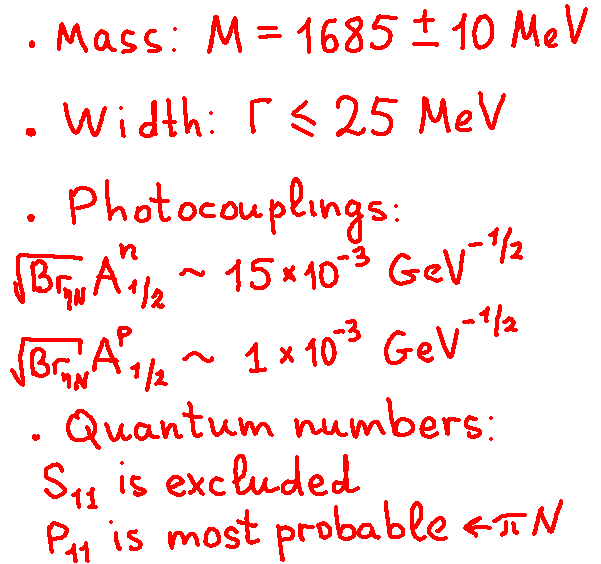 . Mass: M = 1685 ± 10 MeV
. Width: Γ ⩽ 25 MeV
. Photocouplings:
√Br_ηN A^n_1/2 ~ 15 × 10^-3 GeV^-1/2
√Br_ηN A^p_1/2 ~ 1 × 10^-3 GeV^-1/2
. Quantum numbers:
S_11 is excluded
P_11 is most probable ← πN